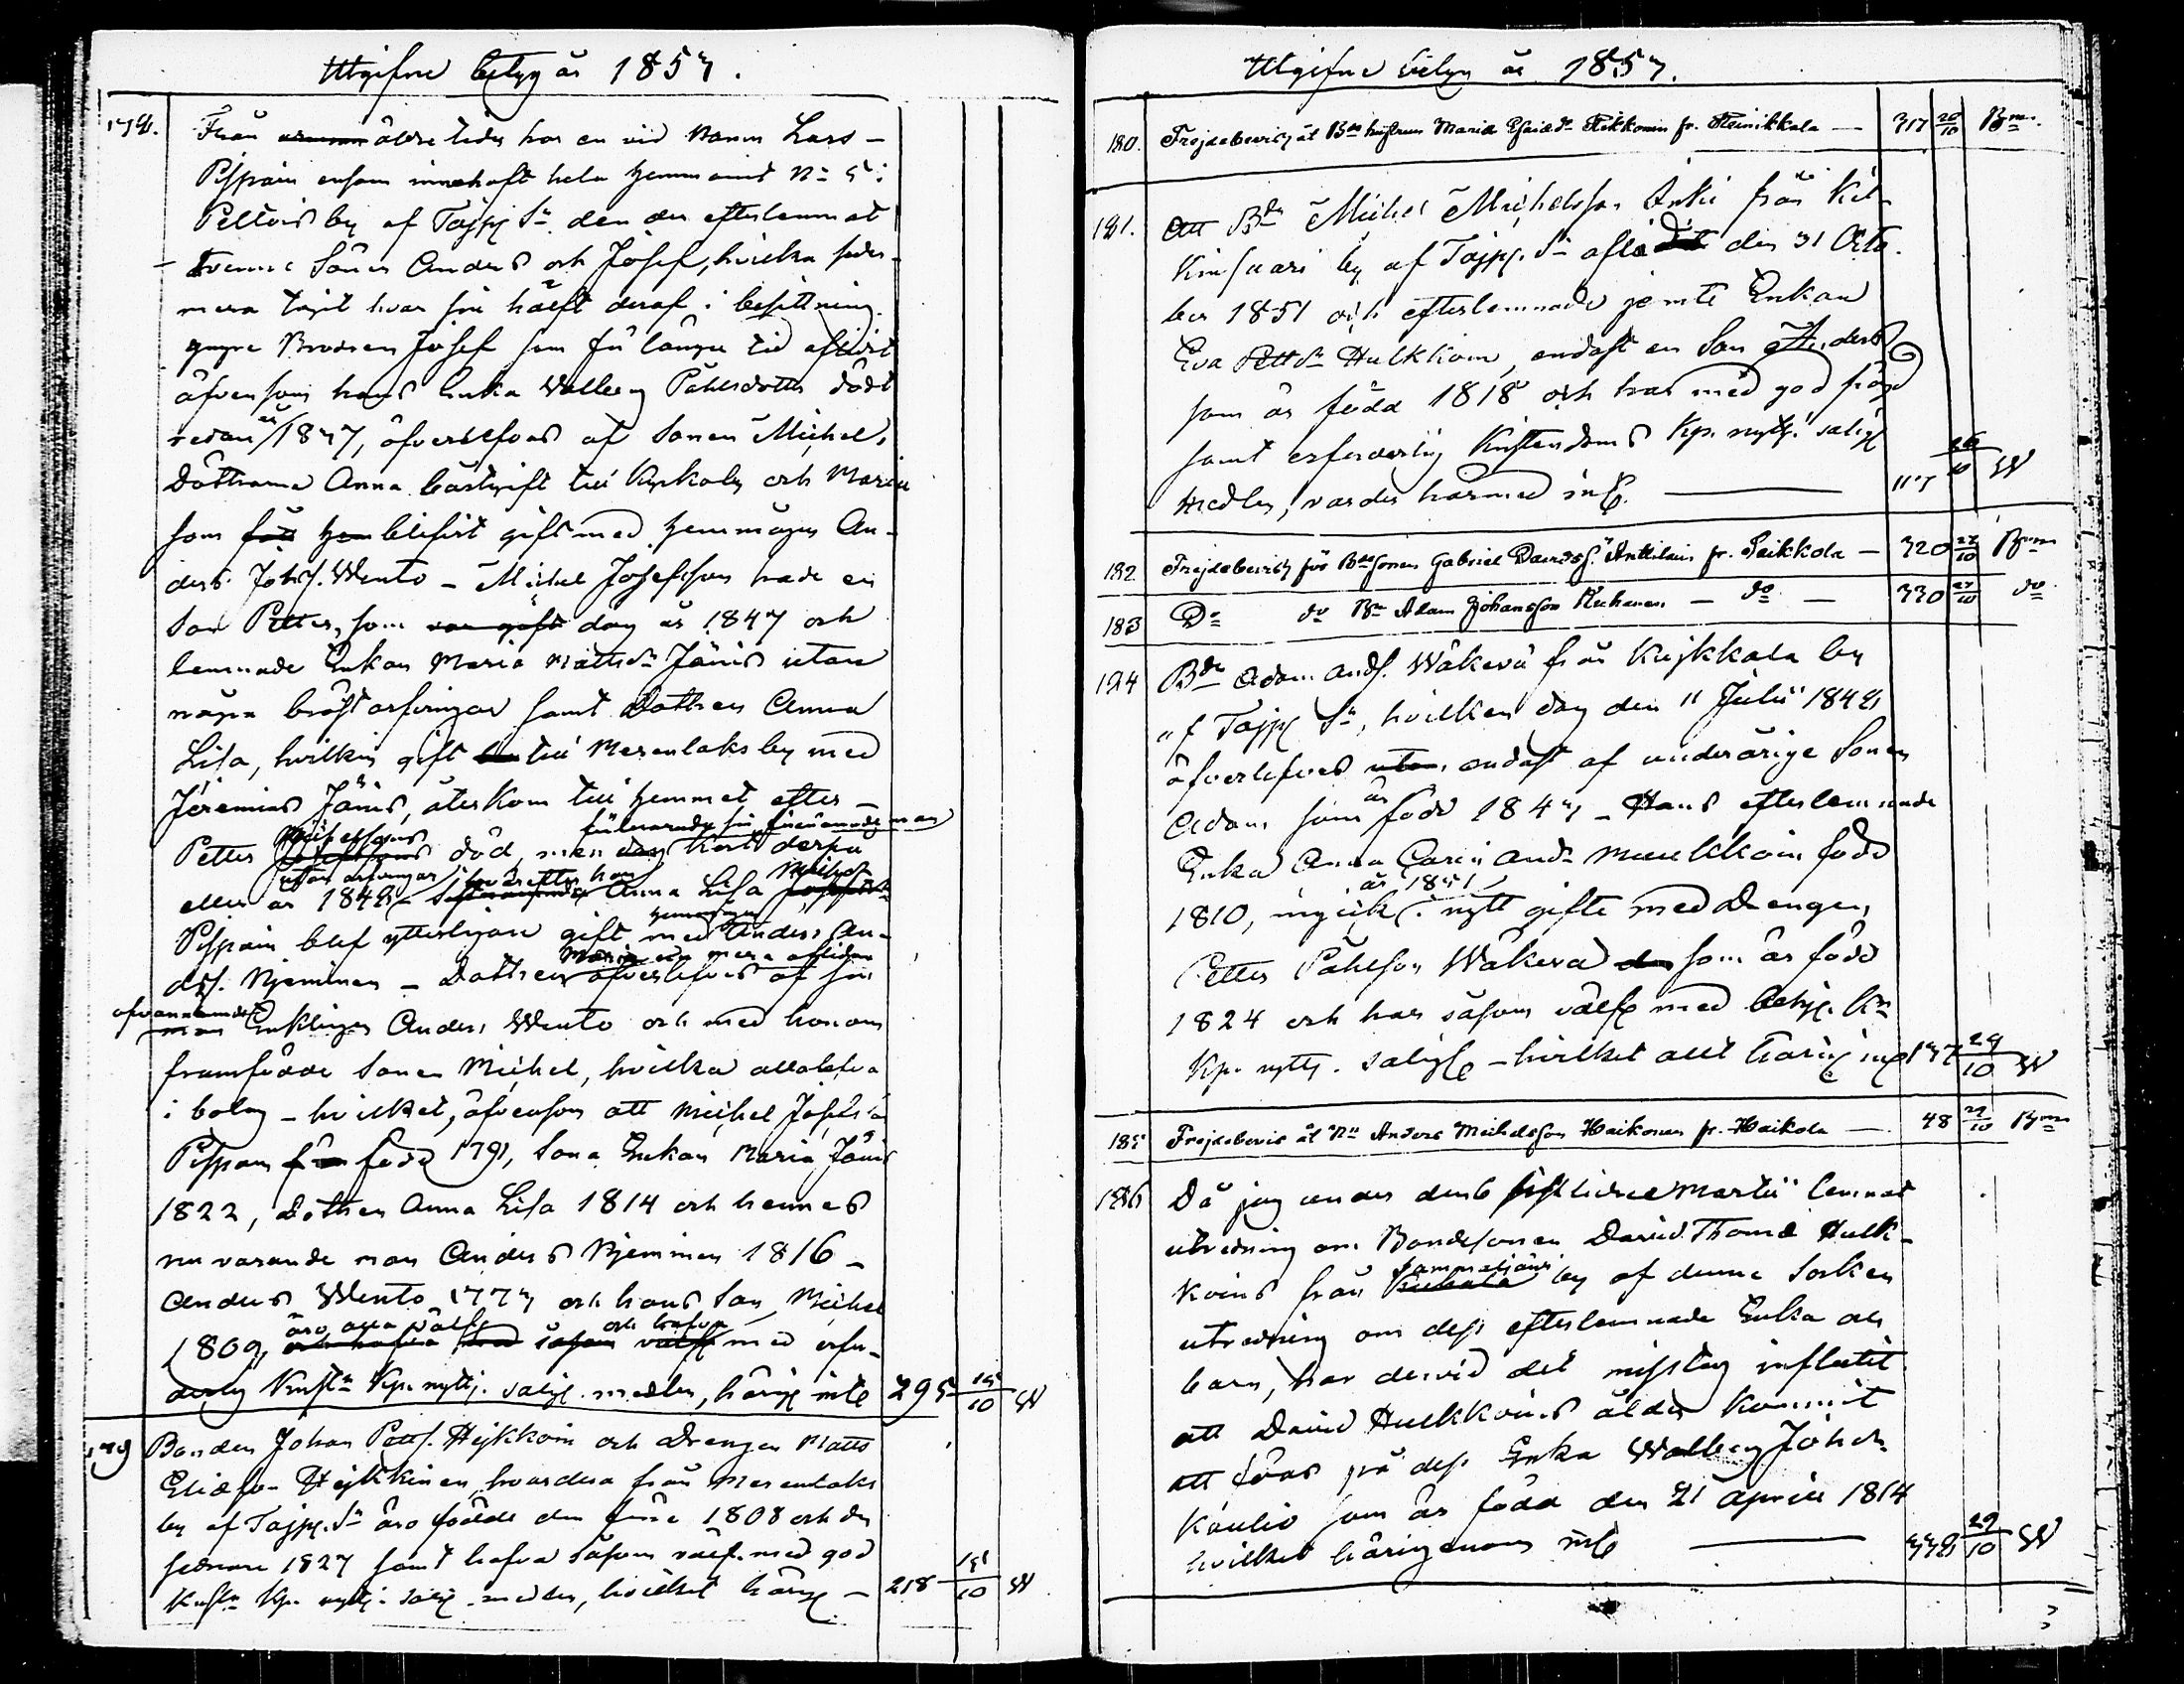 Utgifne betyg år 1857.
178. Från äldre tider har en vid namn Lars
Pispain ensam innehaft hela hemmanet No 5 i
Peltois by af Taipp. Sn den der efterlemnat
tvenne Söner Anders och Josef, hvilka seder-
mera tagit hvar sin hälft deraf i besittning.
yngre Brodren Josef som för länge tid aflidit
äfvensom hans Enka Walborg Påhlsdotter dödt
redan år 1847, öfverlefvas af Sonen Michel,
Döttrarna Anna bortgift till by och Maria
som blifvit gift med hemmågen An-
ders Johs. Wento – Michel Josefsson hade en
Son Petter, som dog år 1847 och
lemnade Enkan Maria Mattsdr Jänis utan
några bröstarfvingar samt Dottren Anna
Lisa, hvilken gift till Merenlaks by med
Jeremias Jänis, återkom till hemmet efter
förlorande sin förenämnde man
Petter Michelssons död, men kort derpå
utan arfvingar hvarefter hon Michelsdr
eller år 1848 – Anna Lisa
hemmågen
Pispain blef ytterligare gift med Anders An-
Maria som mera afliden
dss. Njeminen – Dottren öfverlefvas af sin
ofvannämnde
man Enklingen Anders Wento och med honom
framfödde Sonen Michel, hvilka alla lefva
i bolag – hvilket, äfvensom att Michel Josefsson
Pispain född 1791, Sona Enkan Maria Jänis
1822, dottren Anna Lisa 1814 och hennes
nuvarande man Anders Njeminen 1816 –
Anders Wento 1777 och hans Son Michel
äro alla välfr. och hafva
1809, med erfor-
derlig Kristn Kp. nyttj. salig. medlen, härig. inte 295 10 W
179 Bonden Johan Petts. Hejkkoin och Drengen Matts
Eliasson Hejkkinen hvardera från Merenlaks
by af Taipp. Sn äro födde den förre 1808 och den
sednare 1827 samt hafva såsom välfr. med god
Kristn Kp. nyttj. salig. medlen, hvilket härig. – 218 10 W
Utgifne betyg år 1857.
180. Frejdebevis åt Bde hustrun Maria Esaiædr Tikkonin fr. Heinikkala — 317 26/10 Bmn.
181. Att Bdn Michel Michelsson Anki från Kil-
by af Taipp. Sn aflidit den 31 Octo-
ber 1851 och efterlemnade jemte Enkan
Eva Pettdr Hulkkoin, endast en Son Anders
som är född 1818 och har med god frägd
samt erforderlig Kristendoms Kp. nyttj. salig.
medlen, varder härmed int. — 117 26/10 W
182 Frejdebevis för Bdesonen Gabriel Davids. Anttilain fr. Seikkola — 320 27/10 Bmn
183 Do do Bn Adam Johansson Kuhanen — do — 330 27/10 do
184 Bdn Adam Ands. Wäkevä från Kujkkala by
af Taipp Sn, hvilken dog den 11 Julii 1848
öfverlefves endast af underårige Sonen
Adam som är född 1847 – Hans efterlemnade
Enka Anna Carin Andr Muukkoin född
år 1851
1810, ingick i nytt gifte med Drengen
Petter Påhlson Wäkevä som är född
1824 och har såsom välfr. med betyg. Kn
Kp. nyttj. salig. – hvilket allt härig. int 29/10 W
185 Frejdebevis åt Bn Anders Michelsson Haikonen fr. Haikola — 48 29/10 Bmn
186 Då jag under den 6 sistlidne Martii lemnat
utredning om Bondesonen David Thomæ Hulk-
koins från by af denne Socken
utredning om dess efterlemnade Enka och
barn, har dervid det misstag influtit
att David Hulkkoins ålder kommit
att föras på dess Enka Walborg Johdr
Kaulio som är född den 21 April 1814
hvilket härigenom int — 338 29/10 W